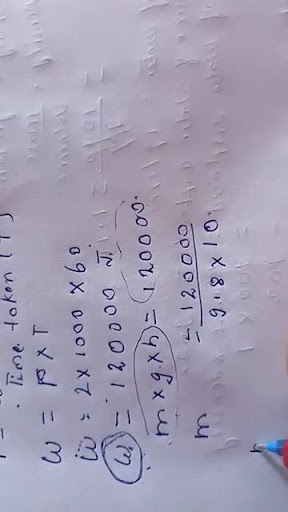 Time taken (T)
W = P x T
W = 2 x 1000 x 60
W = 120000 J.
m x g x h = 120000.
m = 120000
9.8 x 10.